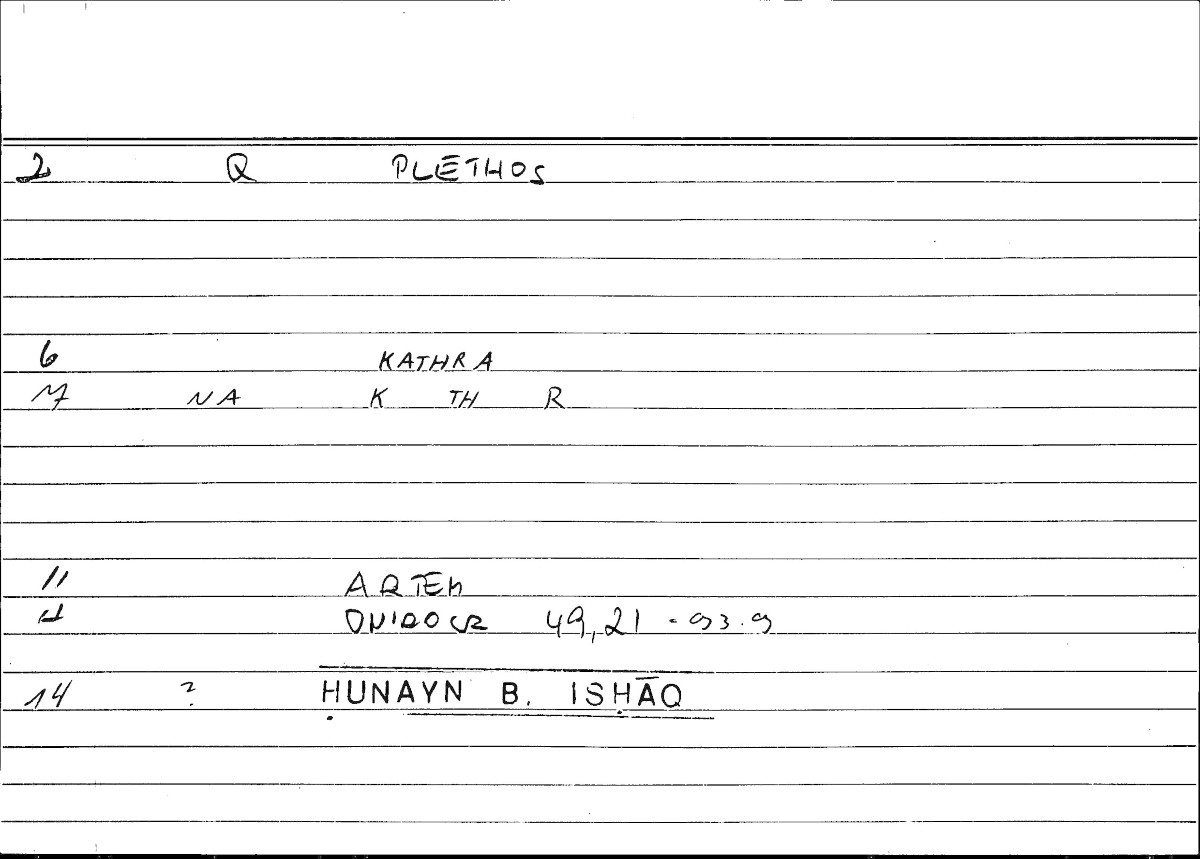 2 Q PLĒTHOS
6 KATHRA
NA K TH R
11 ARTEM
ONIROCR 49,21
14 ? ḤUNAYN B. ISḤĀQ